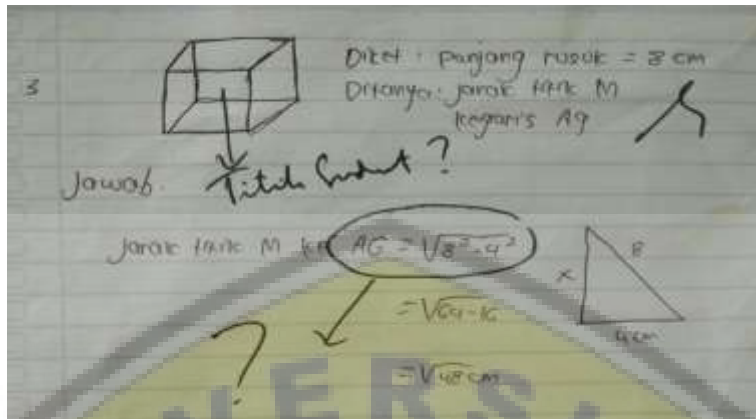 3
Diket : panjang rusuk = 8 cm
Ditanya : jarak titik M
kegaris AG
Jawab.
Titik Sudut ?
Jarak titik M ke AG = √8²-4²
= √64-16
= √48 cm
?
x
8
4cm
N E R S